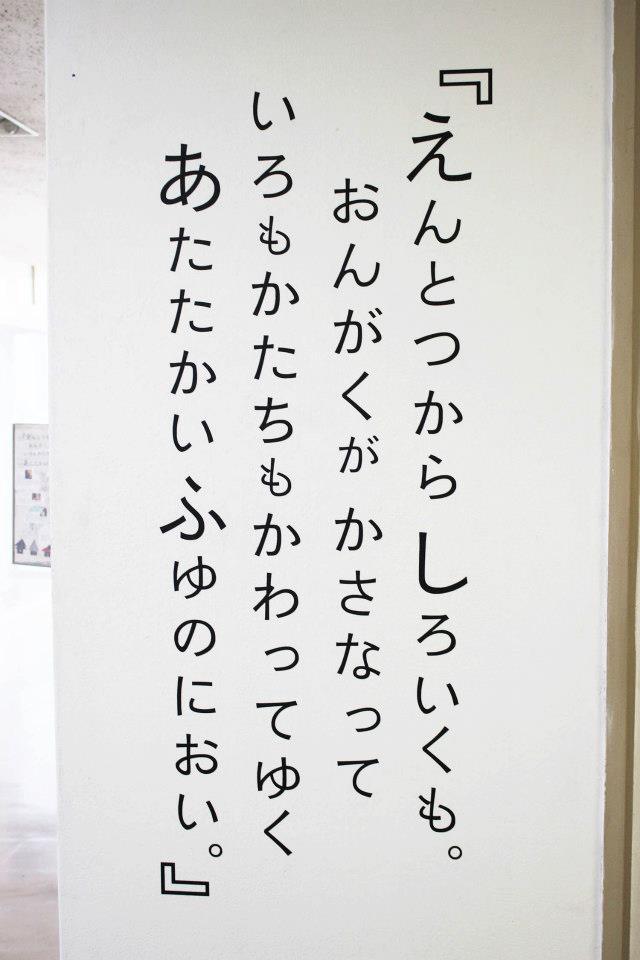 『えんとつからしろいくも。
おんがくが かさなって
いろもかたちもかわってゆく
あたたかいふゆのにおい。』